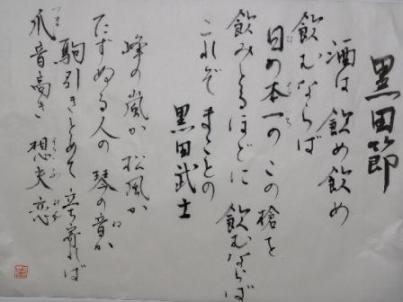 黒田節
酒は 飲め飲め
飲むならば
日の本一の この槍を
飲みとるほどに 飲むならば
これぞ まことの
黒田武士
峰の嵐か 松風か
たずぬる人の 琴の音か
駒引きとめて 立ち寄れば
爪音高き 想夫恋